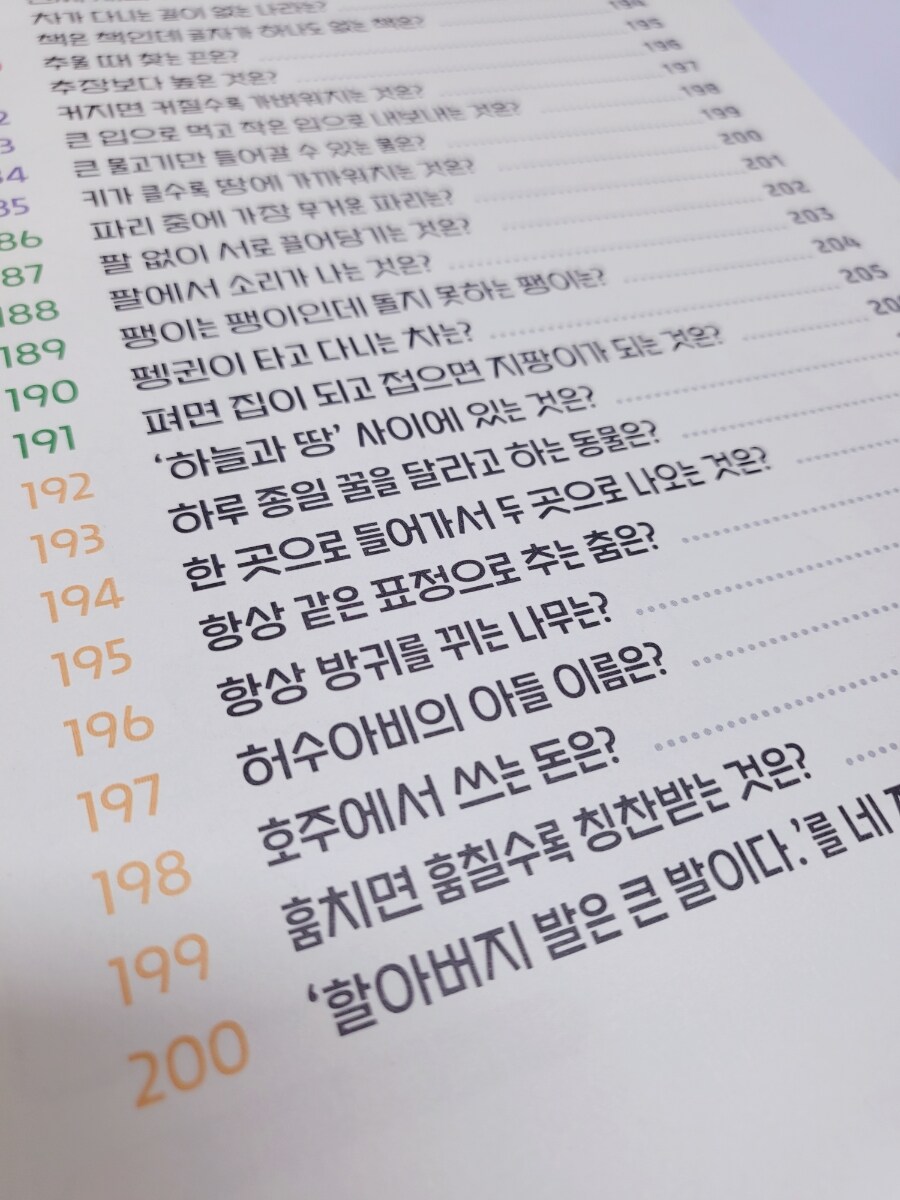 차가 다니는 길이 없는 나라는?
책은 책인데 글자가 하나도 없는 책은? 194
추울 때 찾는 끈은? 195
추장보다 높은 것은? 196
2 커지면 커질수록 가벼워지는 것은? 197
3 큰 입으로 먹고 작은 입으로 내보내는 것은? 198
84 큰 물고기만 들어갈 수 있는 물은? 199
85 키가 클수록 땅에 가까워지는 것은? 200
86 파리 중에 가장 무거운 파리는? 201
87 팔 없이 서로 끌어당기는 것은? 202
188 팔에서 소리가 나는 것은? 203
189 팽이는 팽이인데 돌지 못하는 팽이는? 204
190 펭귄이 타고 다니는 차는? 205
191 펴면 집이 되고 접으면 지팡이가 되는 것은? 20
192 ‘하늘과 땅’ 사이에 있는 것은?
193 하루 종일 꿀을 달라고 하는 동물은?
194 한 곳으로 들어가서 두 곳으로 나오는 것은?
195 항상 같은 표정으로 추는 춤은?
196 항상 방귀를 뀌는 나무는?
197 허수아비의 아들 이름은?
198 호주에서 쓰는 돈은?
199 훔치면 훔칠수록 칭찬받는 것은?
200 ‘할아버지 발은 큰 발이다.’를 네